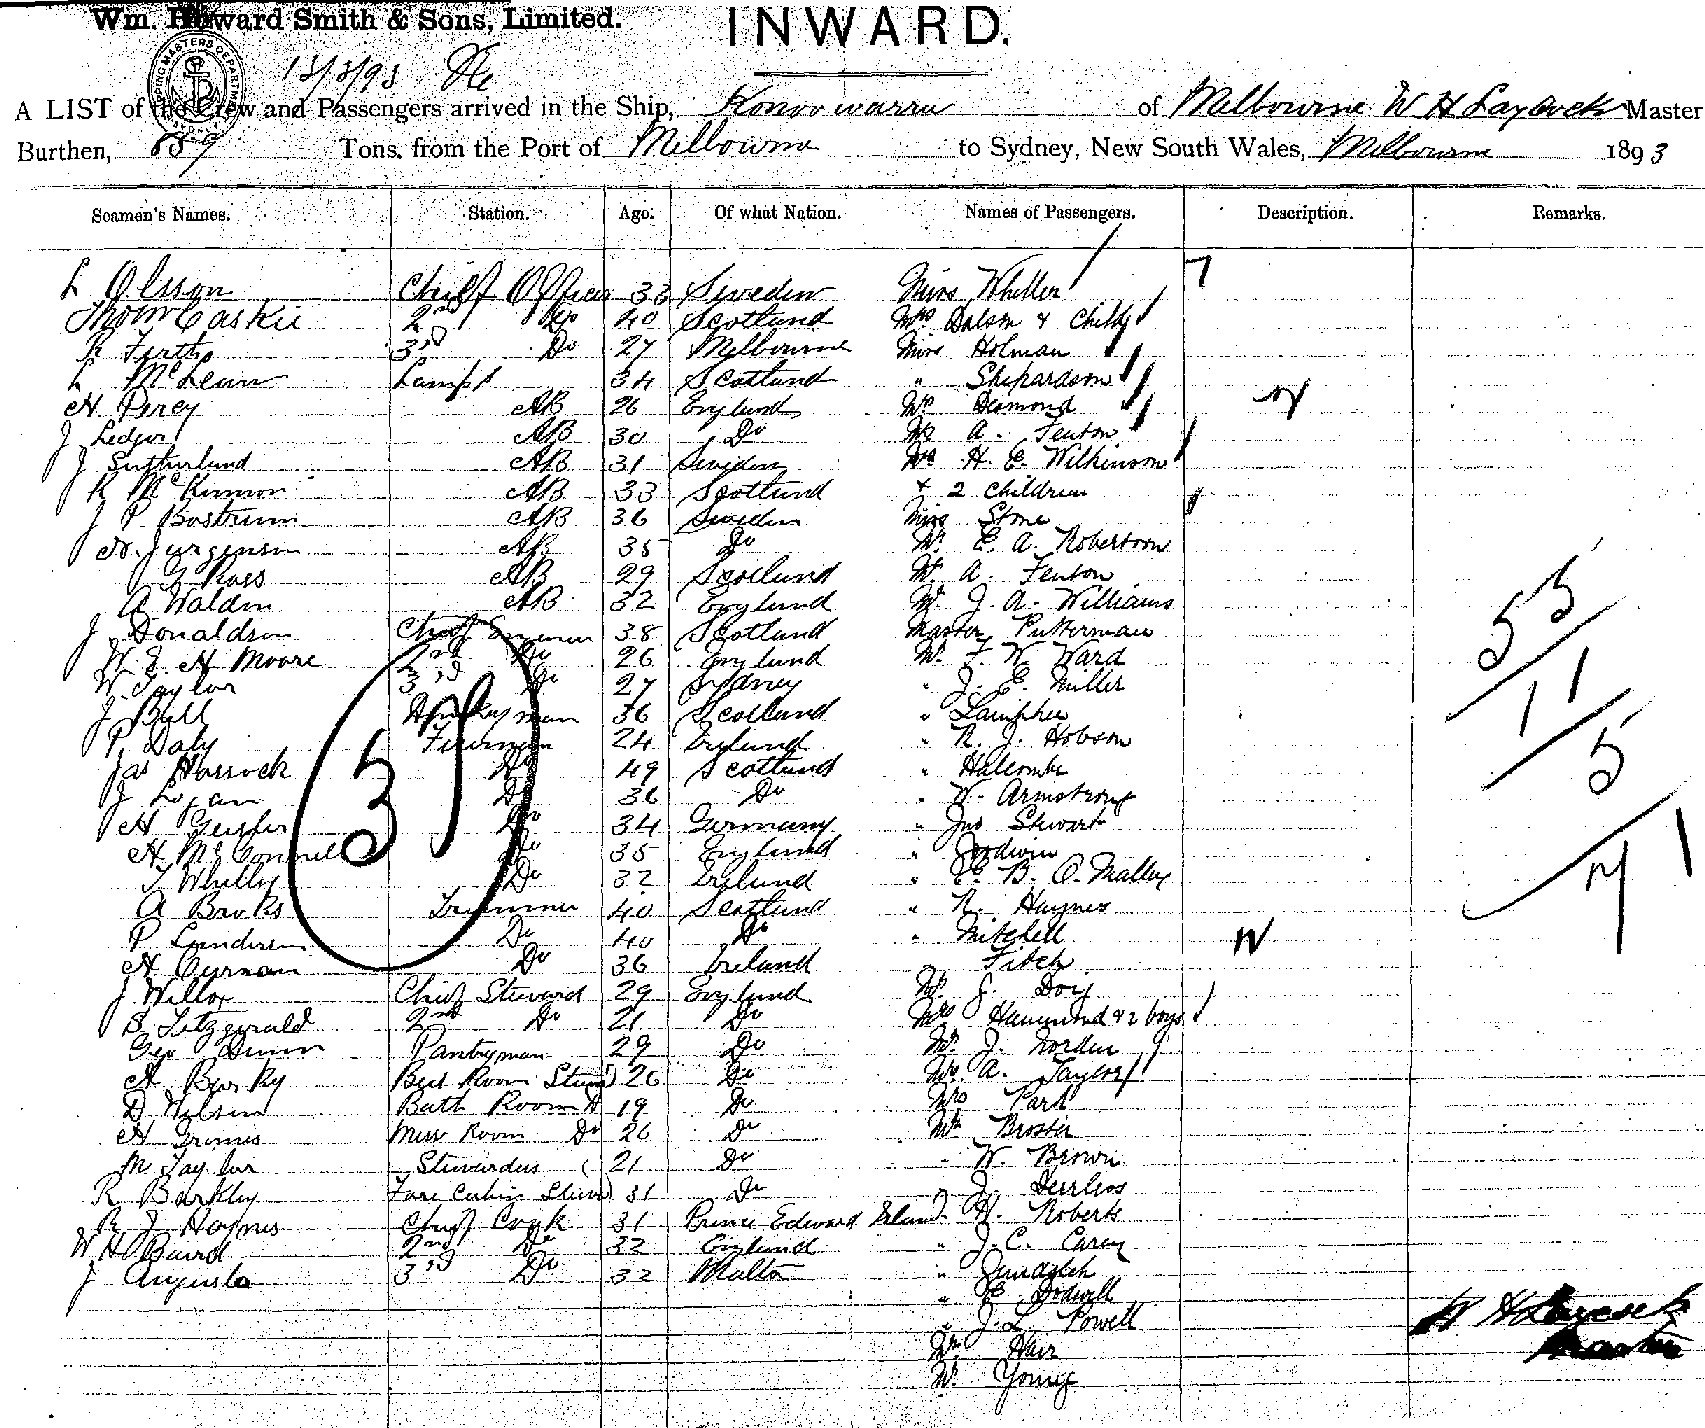 Wm. Howard Smith & Sons, Limited.
INWARD.
13/3/93
A LIST of the Crew and Passengers arrived in the Ship, Konoowarra of Melbourne W H Laycock Master
Burthen, 859 Tons. from the Port of Melbourne to Sydney, New South Wales, Melbourne 1893
Seamen's Names. Station. Age. Of what Nation. Names of Passengers. Description. Remarks.
L Olsson Chief Officer 33 Sweden Miss Wheller
Thos McCaskie 2nd Do 40 Scotland Mrs Dalson & Child
R Firth 3rd Do 27 Melbourne Miss Holman
L McLean Lamps 34 Scotland " Shepardson
H. Percy AB 26 England Mr Desmond
J Ledger AB 30 Do Mr A. Fenton
J Sutherland AB 31 Sweden Mrs H. E. Wilkinson
R McKinnon AB 33 Scotland & 2 Children
J P Bostrum AB 36 Sweden Miss Stone
N. Jurgenson AB 35 Do Mr E. A. Robertson
G Ross AB 29 Scotland Mr A. Fenton
A Waldin AB 32 England Mr J. A. Williams
J Donaldson Chief Engineer 38 Scotland Master Putterman
W. E. H Moore 2nd Do 26 England Mr F. W. Ward
W Taylor 3rd Do 27 Sydney " J. E. Miller
J Bell Donkeyman 36 Scotland " Lamphee
P Daly Fireman 24 Ireland " R. J. Hobson
Jas Horrock Do 49 Scotland " Halcombe
J Logan Do 36 Do " W. Armstrong
H Geisler Do 34 Germany " Jno Stewart
H McConnell Do 35 England " Goodwin
T Whelly Do 32 Ireland " E. B. O. Malley
A Brooks Trimmer 40 Scotland " R. Haynes
P Lundiren Do 40 Do " Mitchell
H Curnan Do 36 Ireland " Fitch
J Willox Chief Steward 29 England Mr J. Doig
S Fitzgerald 2nd Do 21 Do Mrs Hammond & 2 boys
Geo Dunn Pantryman 29 Do Mr J. Norden
A. Barky Bed Room Stewd 26 Do Mrs A. Taylor
D Wilson Bath Room Do 19 Do Mrs Park
H Grimes Mess Room Do 26 Do Mr Broster
M Taylor Stewardess 21 Do " W. Brown
R Barkly Fore Cabin Stewd 31 Do " J.
R J Haynes Chief Cook 31 Prince Edward Island " H. Roberts
W H Baird 2nd Do 32 England " J. C. Carey
J Augusta 3rd Do 32 Malta "
" E Dodwell
" J. L Powell
Mr Hair
Mr Young
37
53
11
5
71
W H Laycock
Master